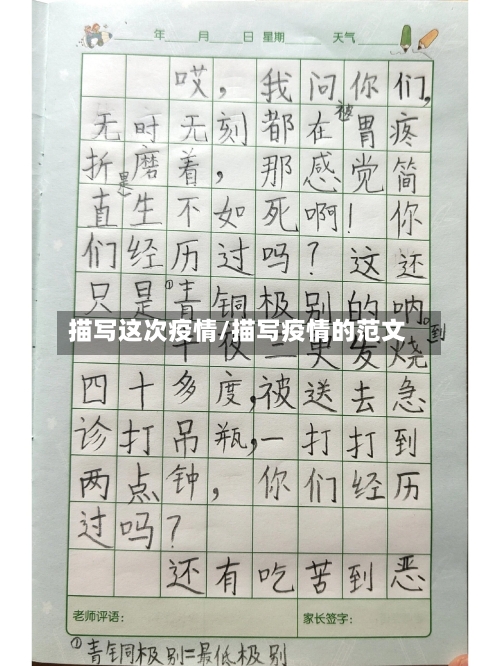 年 月 日 星期 天气
哎，我问你们，
无时无刻都在被胃疼
折磨着，那感觉简
直是生不如死啊！你
们经历过吗？这还
只是①青铜极别的呐。
描写这次疫情/描写疫情的范文
半夜二更发烧到
四十多度，被送去急
诊打吊瓶，一打打到
两点钟，你们经历
过吗？
还有吃苦到恶
老师评语： 家长签字：
①青铜极别=最低极别